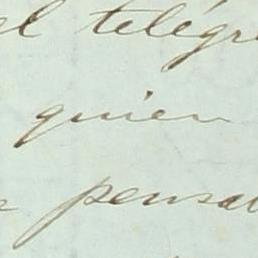 el telégr
quien
pensa